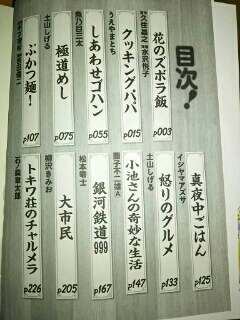 目次!
原作 久住昌之 作画 水沢悦子
花のズボラ飯
p003
うえやまとち
クッキングパパ
p015
魚乃目三太
しあわせゴハン
p055
土山しげる
極道めし
p075
ぶかつ麺!
p107
イシヤマアズサ
真夜中ごはん
p125
土山しげる
怒りのグルメ
p133
藤子不二雄Ⓐ
小池さんの奇妙な生活
p147
松本零士
銀河鉄道999
p167
柳沢きみお
大市民
p205
石ノ森章太郎
トキワ荘のチャルメラ
p226